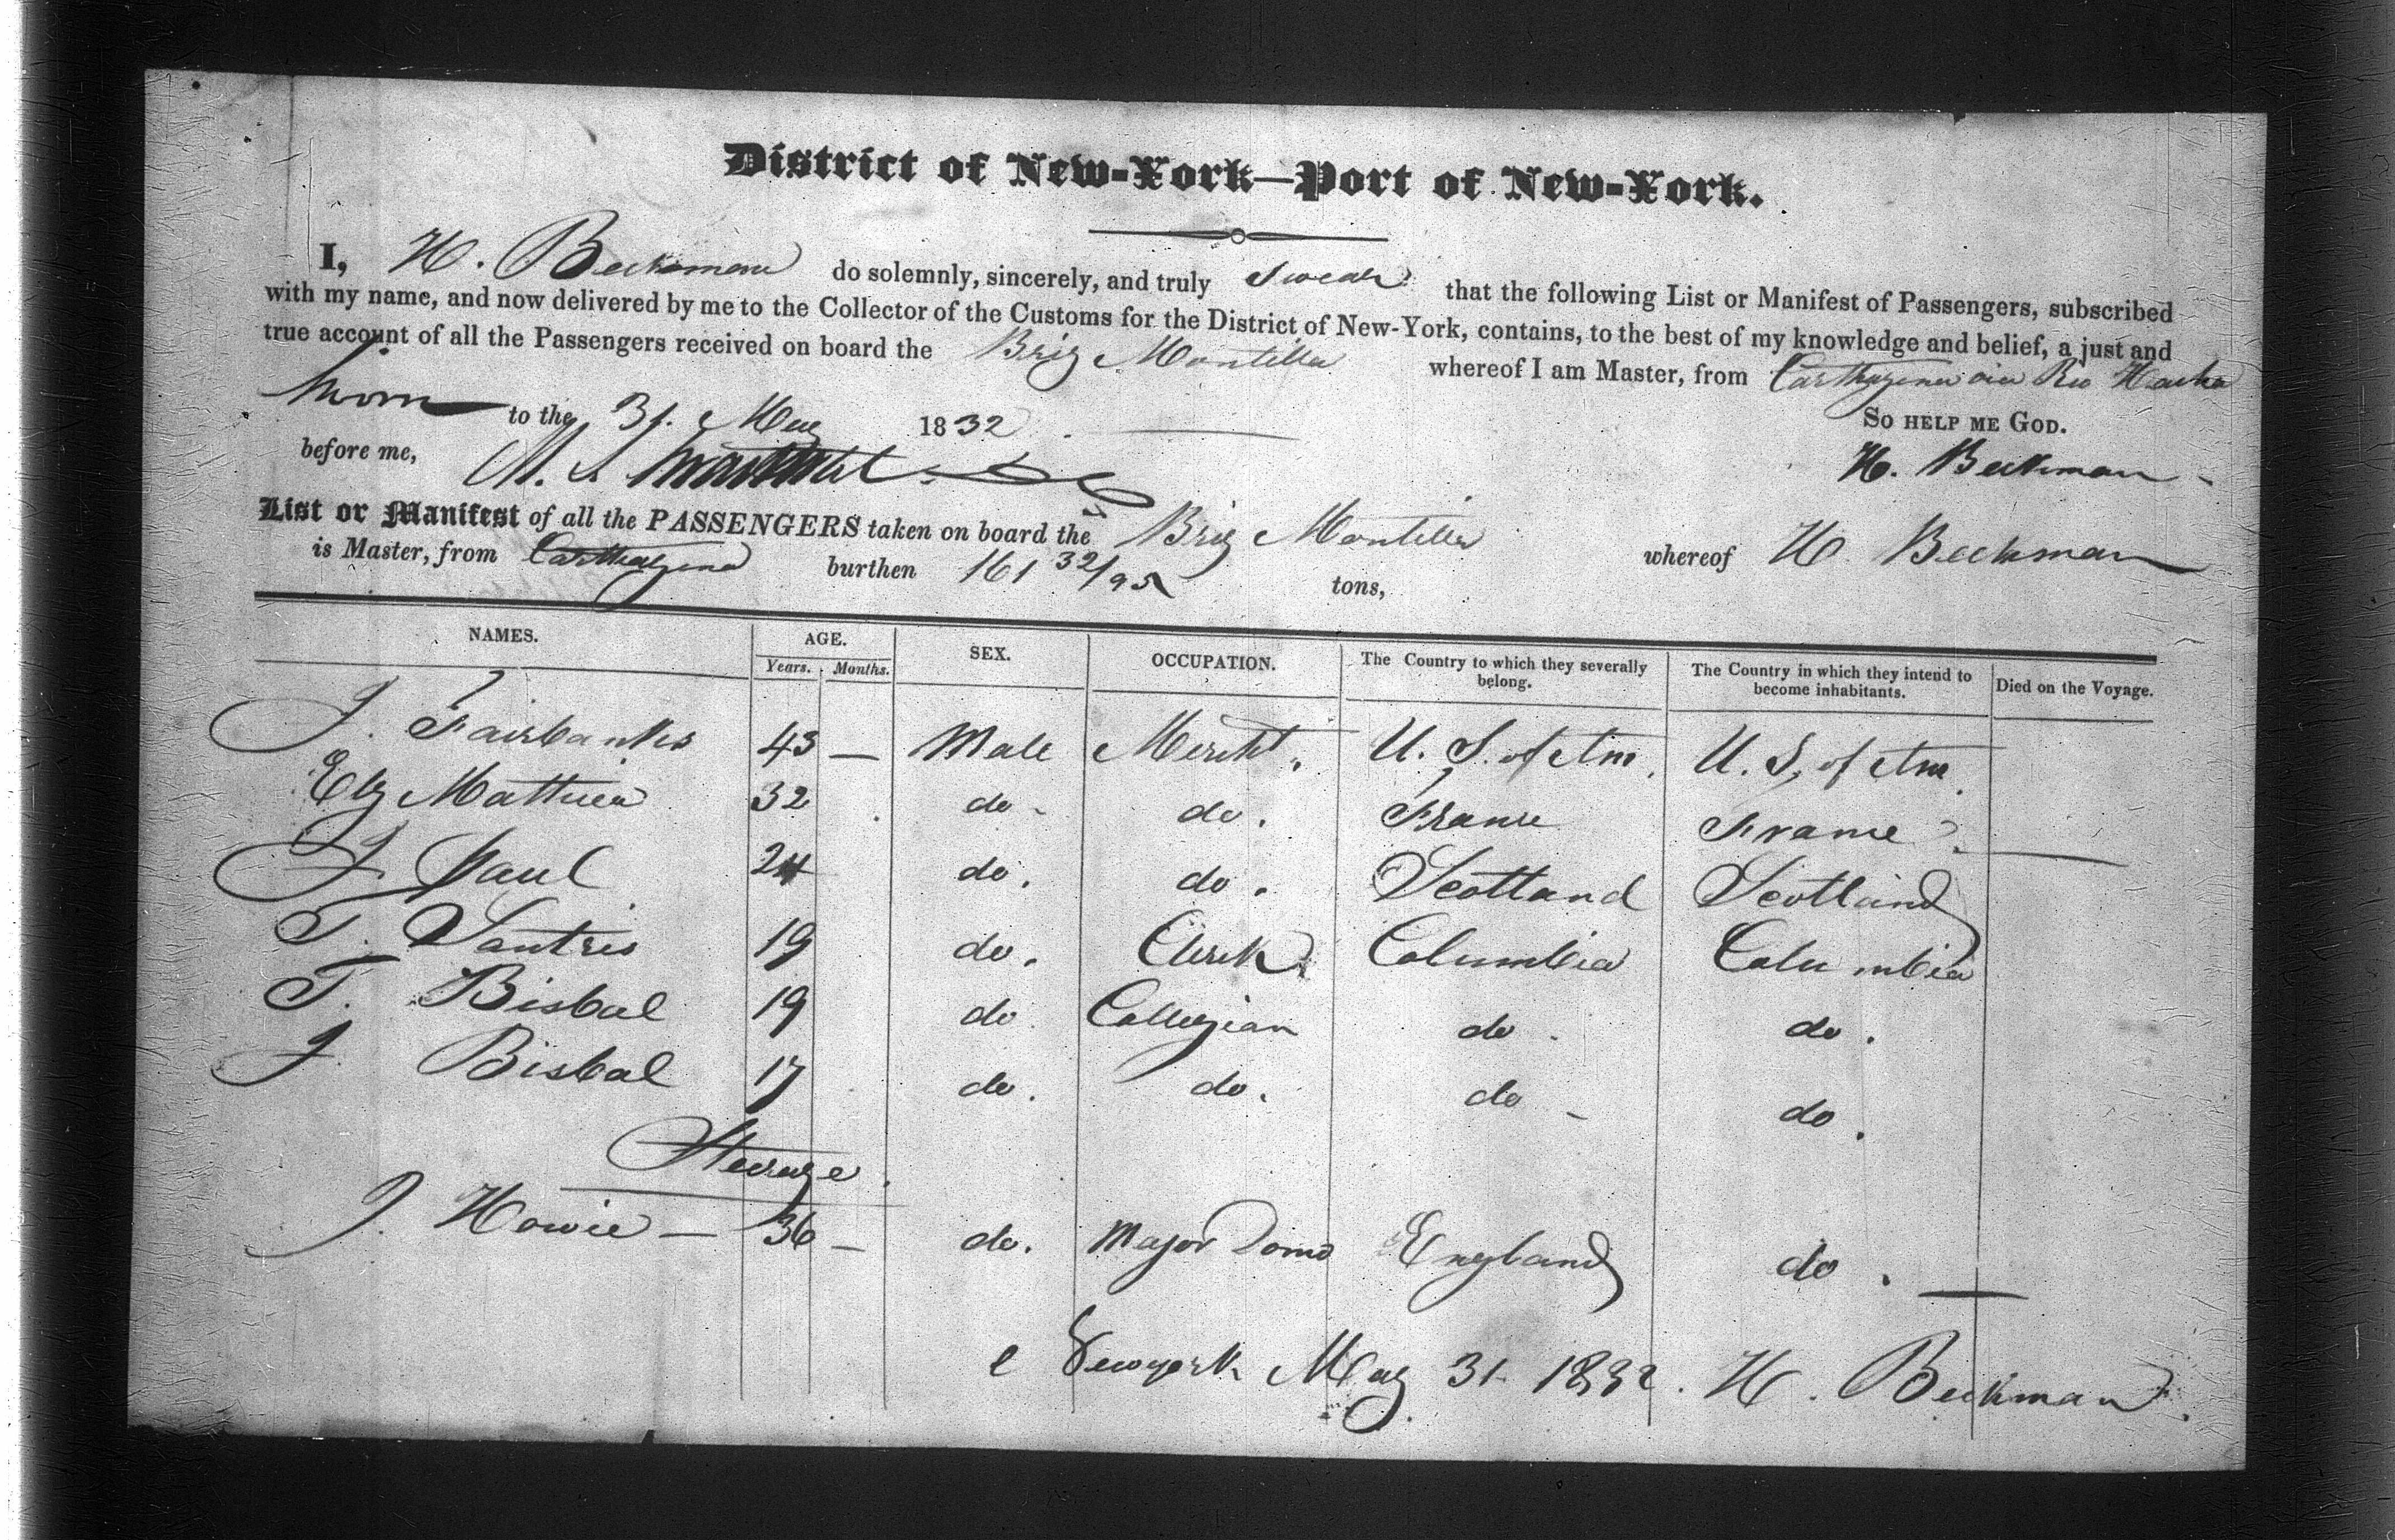 District of New-York—Port of New-York.
I, H. Beekman do solemnly, sincerely, and truly Swear that the following List or Manifest of Passengers, subscribed
with my name, and now delivered by me to the Collector of the Customs for the District of New-York, contains, to the best of my knowledge and belief, a just and
true account of all the Passengers received on board the Brig Montilla whereof I am Master, from Carthagena via Rio Hacha
Sworn to the 31. May 1832. So HELP ME GOD.
before me, H. Beekman
List or Manifest of all the PASSENGERS taken on board the Brig Montilla whereof H Beekman
is Master, from Carthagena burthen 161 32/95 tons,
NAMES. AGE. SEX. OCCUPATION. The Country to which they severally belong. The Country in which they intend to become inhabitants. Died on the Voyage.
Years. Months.
J. Fairbanks 43 — Male Mercht. U. S. of Am. U. S. of Am.
Mathieu 32 do - do. France France
J Paul 24 do. do. Scotland Scotland
T. Santris 19 do. Clerk Columbia Columbia
T. Bisbal 19 do. Collegian do - do.
J Bisbal 17 do. do. do - do.
Steerage.
J. Howie — 36 — do. Major Domo England do.
Newyork May 31 1832. H. Beekman.